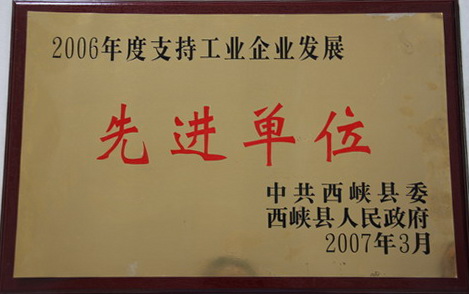 2006年度支持工业企业发展
先进单位
中共西峡县委
西峡县人民政府
2007年3月